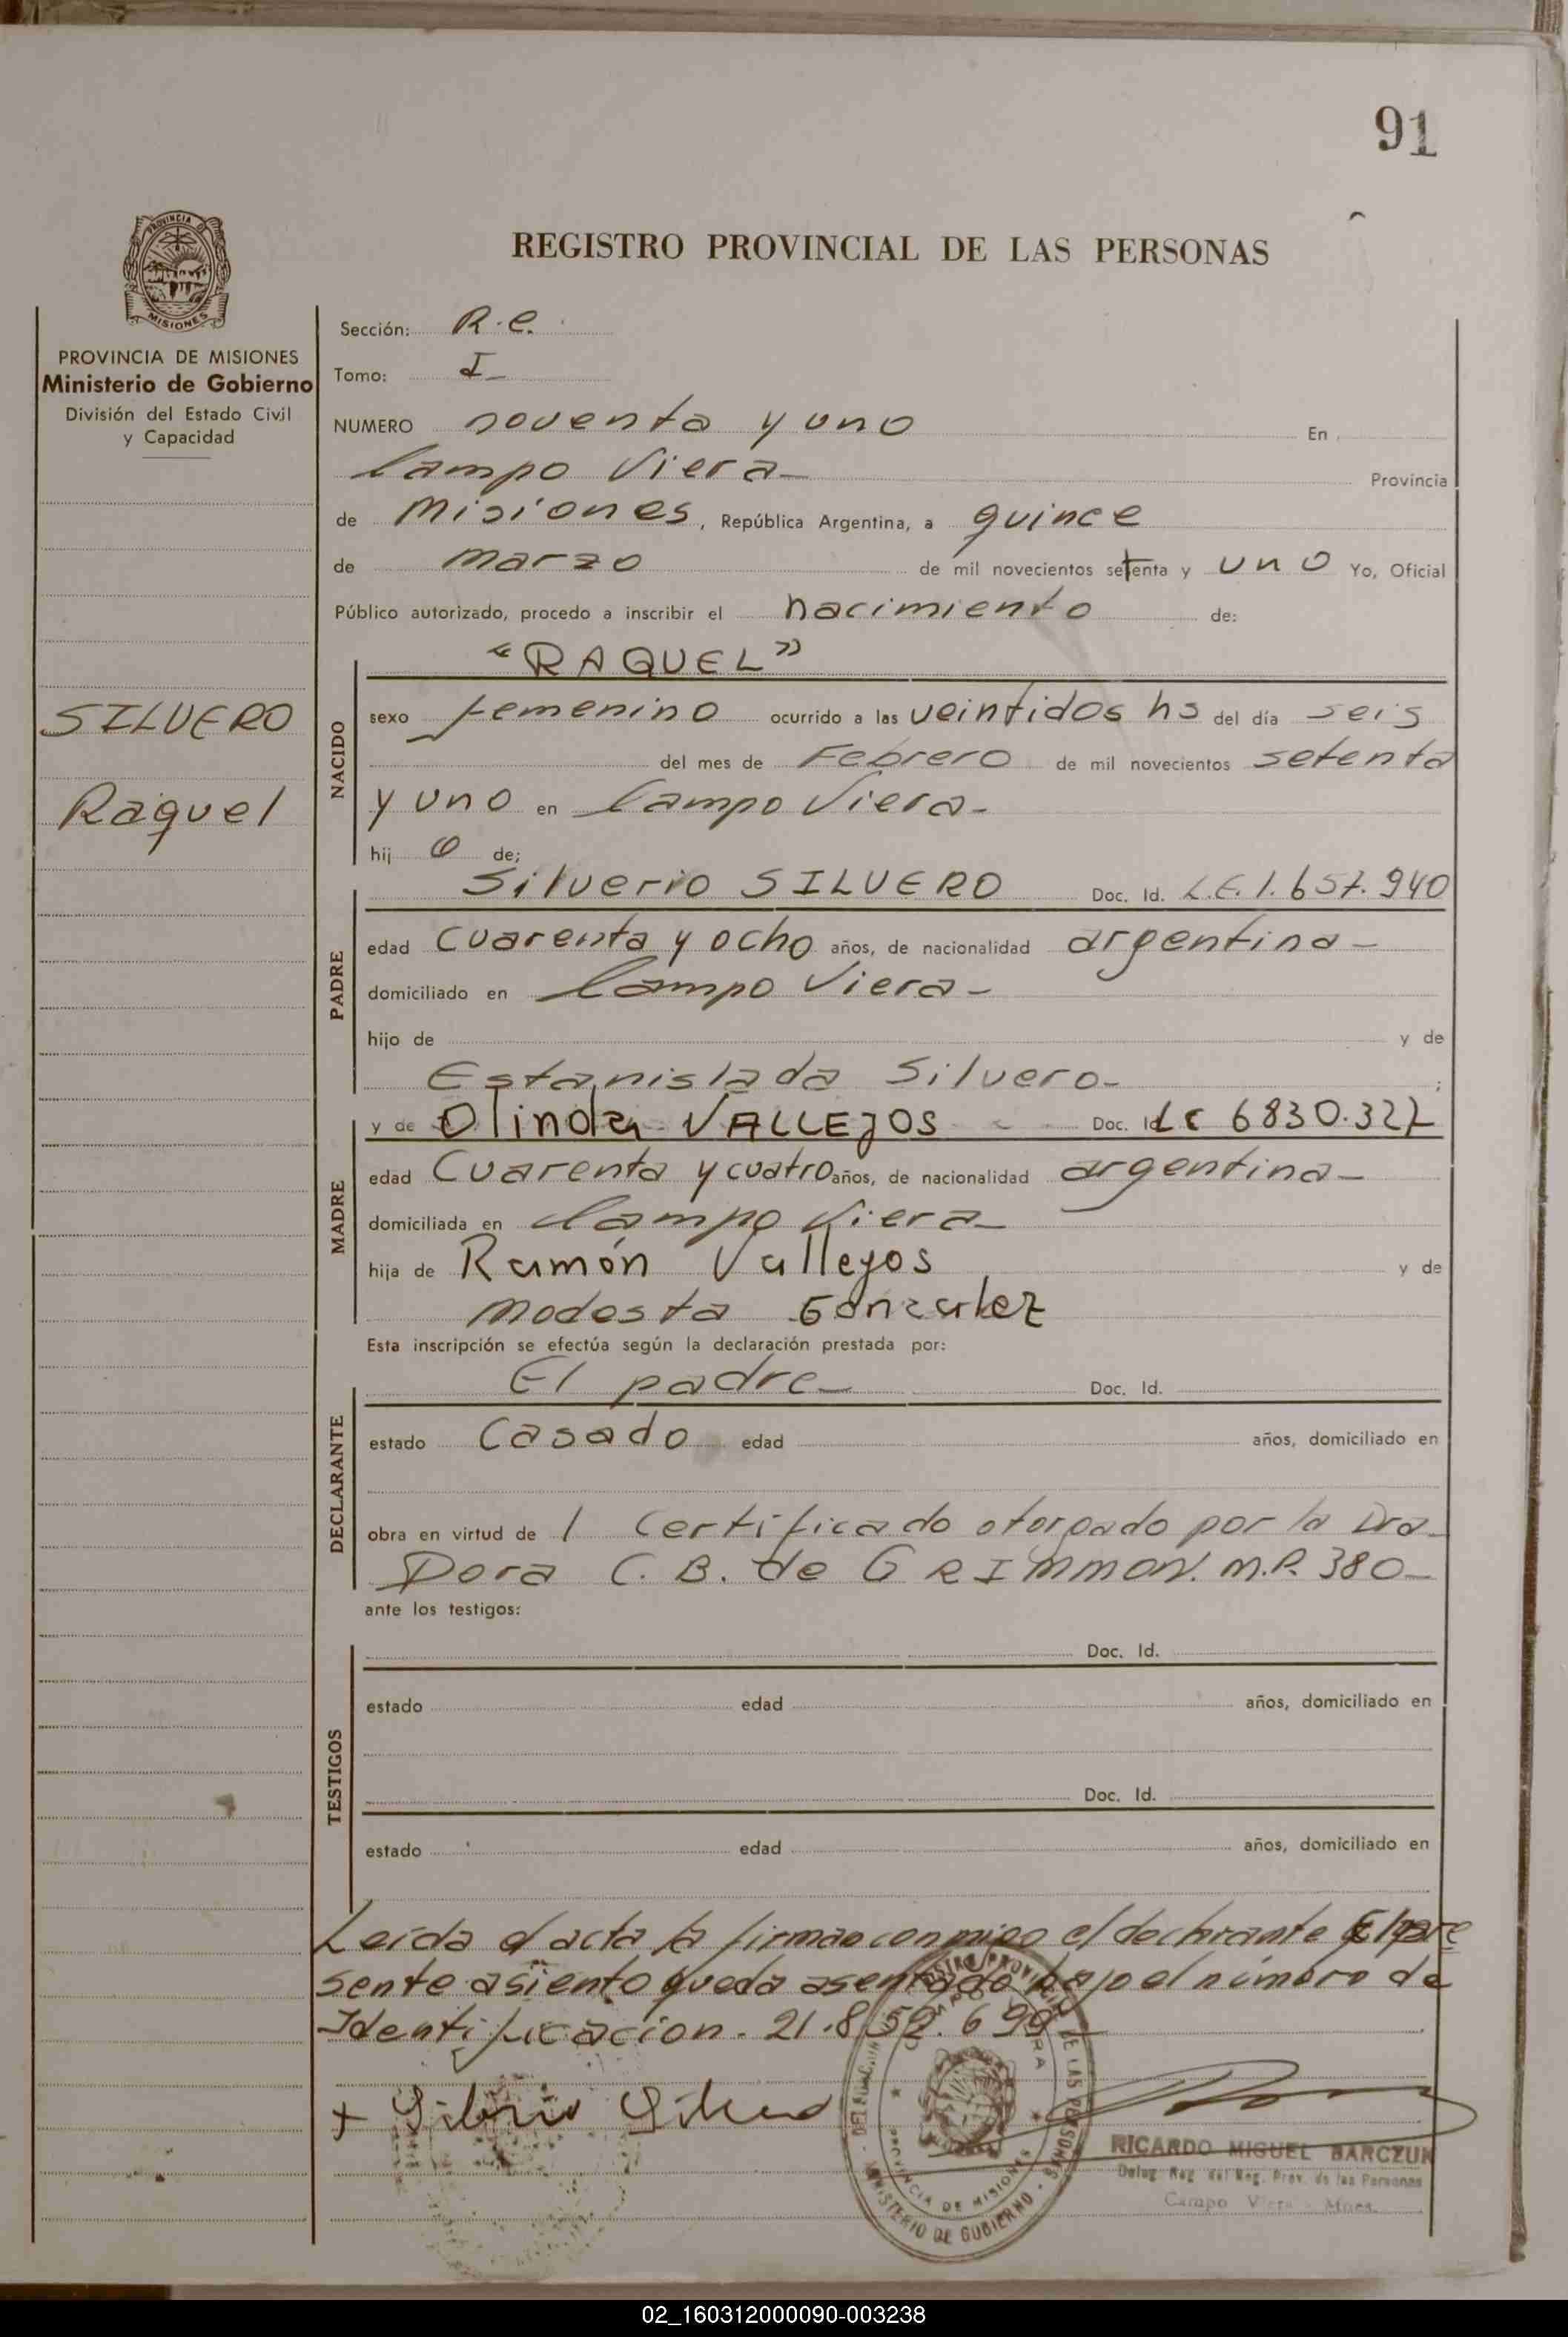 91
REGISTRO PROVINCIAL DE LAS PERSONAS
PROVINCIA DE MISIONES
Ministerio de Gobierno
División del Estado Civil
y Capacidad
SILVERO
Raquel
Sección: R.C.
Tomo: I
NUMERO noventa y uno En
Campo Viera Provincia
de Misiones, República Argentina, a quince
de marzo de mil novecientos setenta y uno Yo, Oficial
Público autorizado, procedo a inscribir el nacimiento de:
"RAQUEL"
NACIDO
sexo femenino ocurrido a las veintidos hs del día seis
del mes de Febrero de mil novecientos setenta
y uno en Campo Viera-
hij a de;
PADRE
Silverio SILVERO Doc. Id. L.E. 1.657.940
edad cuarenta y ocho años, de nacionalidad argentina-
domiciliado en Campo Viera-
hijo de y de
Estanislada Silvero-
MADRE
y de Olinda VALLEJOS Doc. Id LC 6830.322
edad Cuarenta y cuatro años, de nacionalidad argentina-
domiciliada en Campo Viera-
hija de Ramón Vallejos y de
Modesta Gonzalez
Esta inscripción se efectúa según la declaración prestada por:
DECLARANTE
El padre- Doc. Id.
estado Casado edad años, domiciliado en
obra en virtud de 1 Certificado otorgado por la Dra-
Dora C. B. de GRIMMON. M.P. 380-
ante los testigos:
TESTIGOS
Doc. Id.
estado edad años, domiciliado en
Doc. Id.
estado edad años, domiciliado en
Leída el acta la firman conmigo el declarante El pre
sente asiento queda asentado bajo el número de
Identificacion. 21.859.699
+ Silverio Silvero
RICARDO MIGUEL BARCZUK
Deleg. Reg. del Reg. Prov. de las Personas
Campo Viera - Mnes.
PROVINCIA DE MISIONES
MINISTERIO DE GOBIERNO
02_160312000090-003238